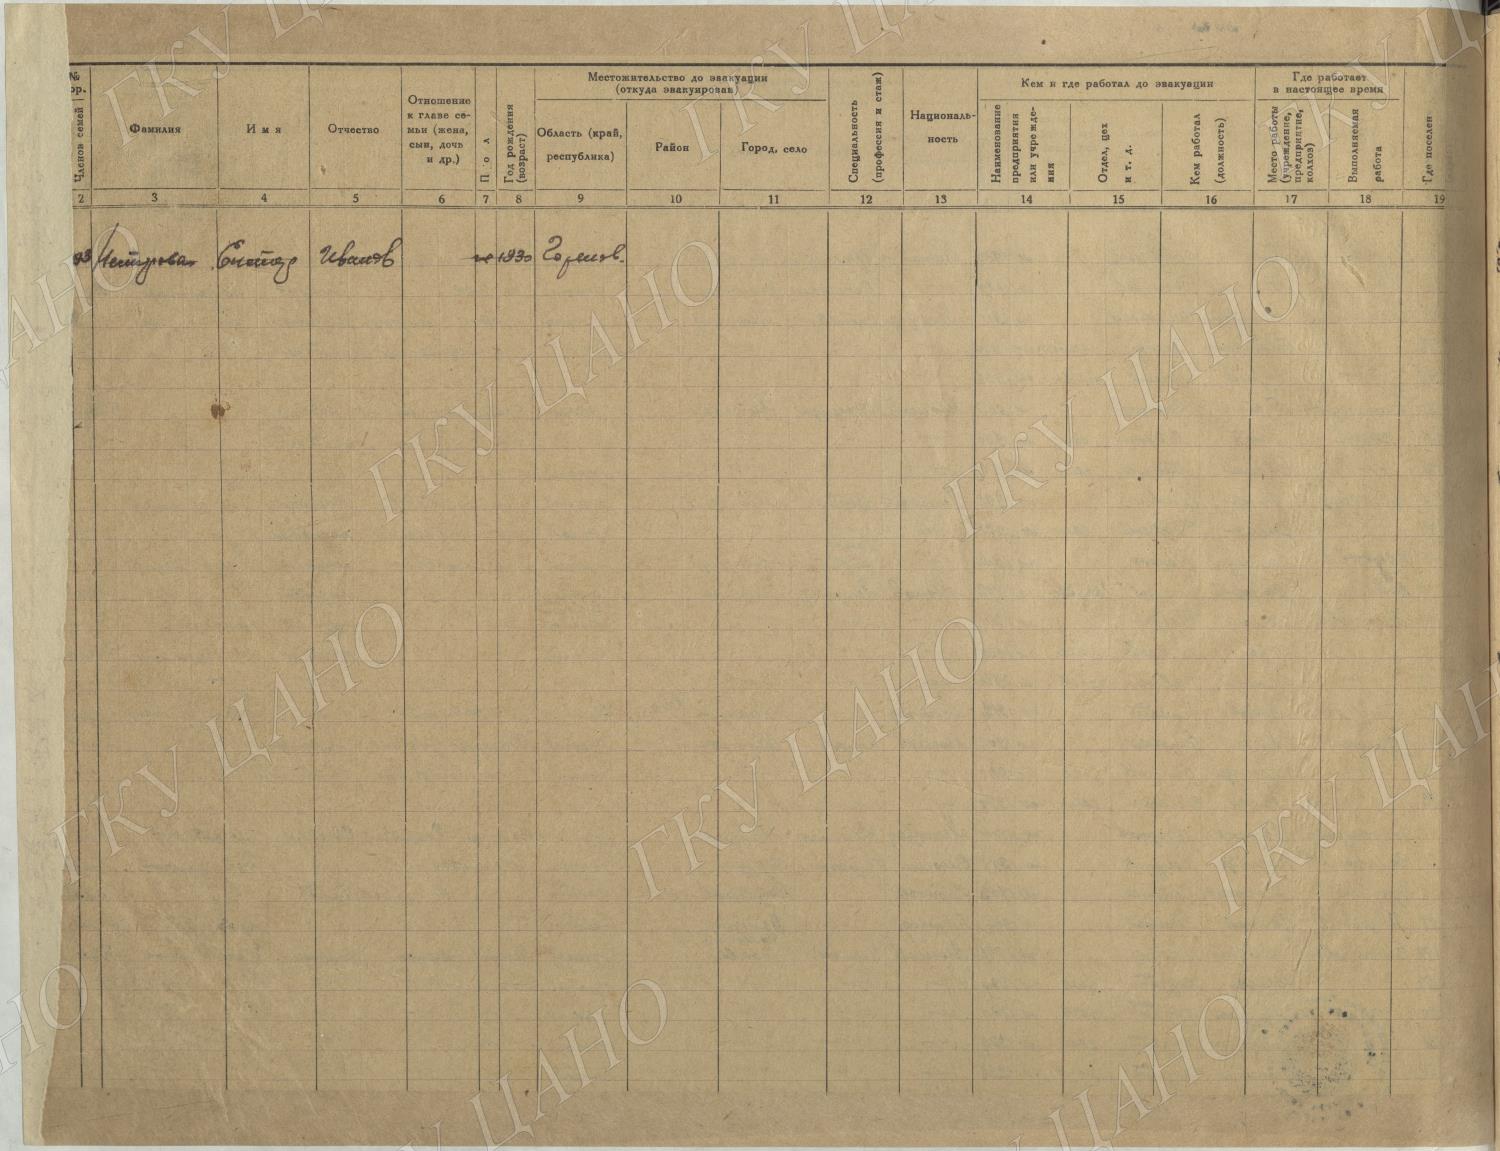 №
ор.
Членов семей
Фамилия
Имя
Отчество
Отношение
к главе се-
мьи (жена,
сын, дочь
и др.)
Пол
Год рождения
(возраст)
Местожительство до эвакуации
(откуда эвакуирован)
Область (край,
республика)
Район
Город, село
Специальность
(профессия и стаж)
Националь-
ность
Кем и где работал до эвакуации
Наименование
предприятия
или учрежде-
ния
Отдел, цех
и т. д.
Кем работал
(должность)
Где работает
в настоящее время
Место работы
(учреждение,
предприятие,
колхоз)
Выполняемая
работа
Где поселен
2 3 4 5 6 7 8 9 10 11 12 13 14 15 16 17 18 19
Иванов 1930
ГКУ ЦАНО